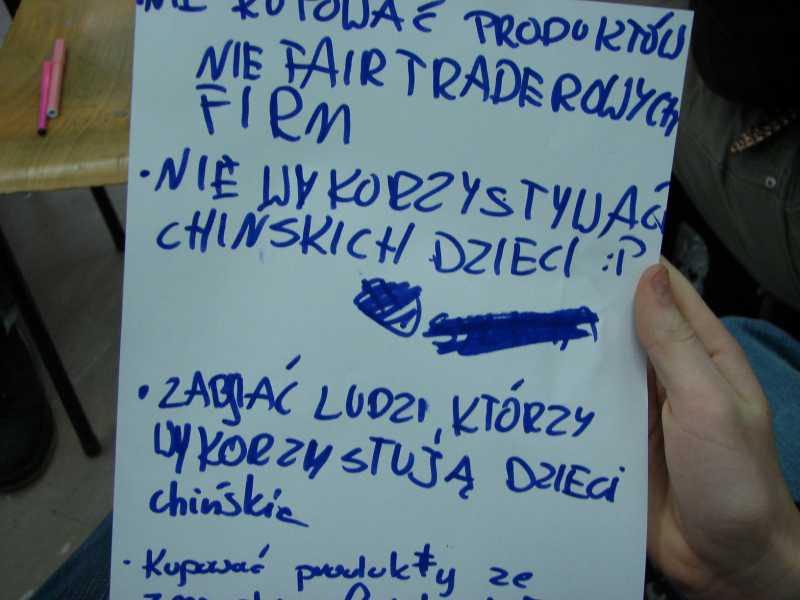 PRODUKTÓW
NIE FAIRTRADEROWYCH
FIRM
• NIE WYKORZYSTYWAĆ
CHIŃSKICH DZIECI :P
• ZABIJAĆ LUDZI, KTÓRZY
WYKORZYSTUJĄ DZIECI
chińskie
• Kupować produkty ze